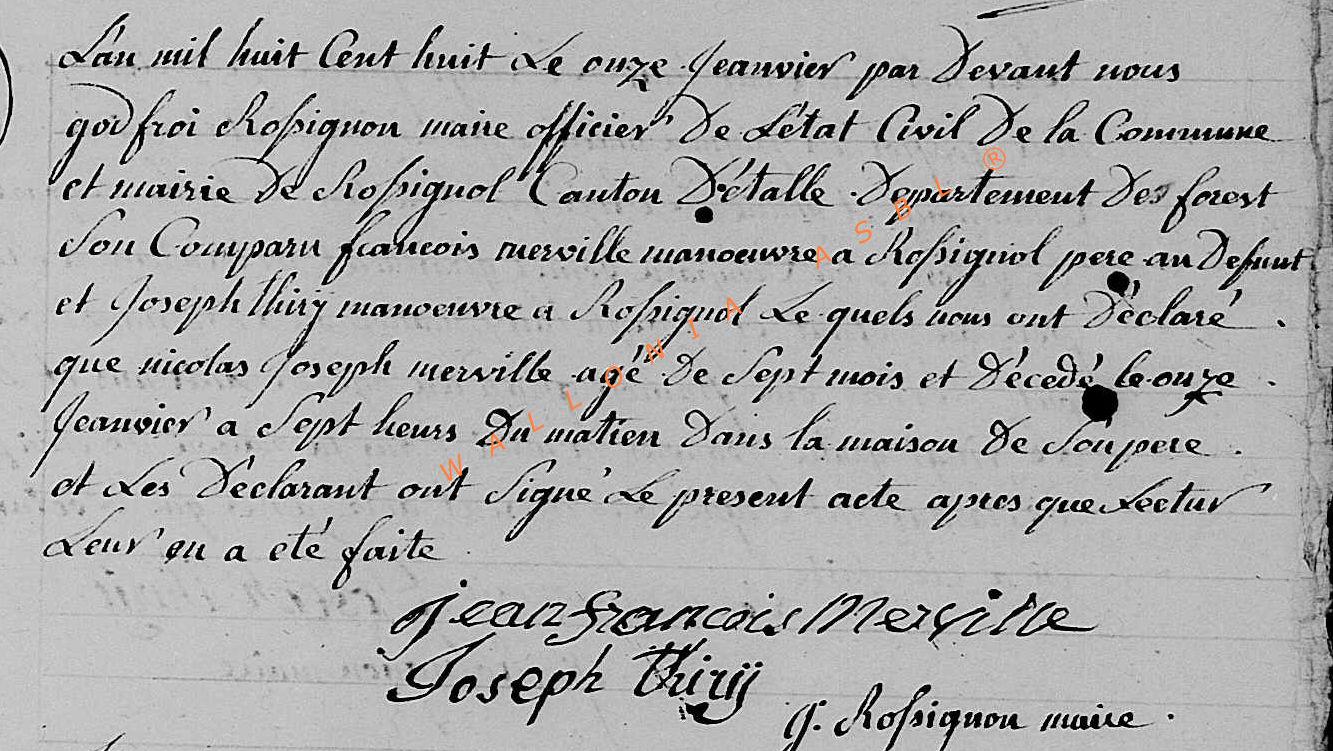 L'an mil huit Cent huit Le onze Jeanvier par Devant nous
godfroi Rossignon maire officier De L'état Civil De la Commune
et mairie De Rossignol Canton D'étalle Departement Des forest
Son Comparu francois merville manoeuvre a Rossignol pere au Defunt
et Joseph thirij manoeuvre a Rossignol Le quels nous ont Déclaré
que nicolas Joseph merville agé De Sept mois et Décedé le onze
Jeanvier a Sept heurs Du matien Dans la maison De Son pere
et Les Déclarant ont Signé Le present acte apres que Lectur
Leur en a eté faite
jean francois Merville
Joseph thirij
g. Rossignon maire
WALLONIA ASBL ®